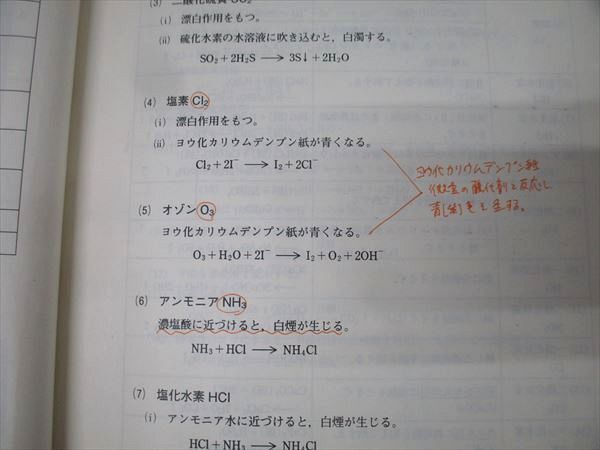 (3) 二酸化硫黄 SO₂
(i) 漂白作用をもつ。
(ii) 硫化水素の水溶液に吹き込むと，白濁する。
SO₂ + 2H₂S ⟶ 3S↓ + 2H₂O
(4) 塩素 Cl₂
(i) 漂白作用をもつ。
(ii) ヨウ化カリウムデンプン紙が青くなる。
Cl₂ + 2I⁻ ⟶ I₂ + 2Cl⁻
ヨウ化カリウムデンプン紙
微量の酸化剤と反応し
青紫色を呈する。
(5) オゾン O₃
ヨウ化カリウムデンプン紙が青くなる。
O₃ + H₂O + 2I⁻ ⟶ I₂ + O₂ + 2OH⁻
(6) アンモニア NH₃
濃塩酸に近づけると，白煙が生じる。
NH₃ + HCl ⟶ NH₄Cl
(7) 塩化水素 HCl
(i) アンモニア水に近づけると，白煙が生じる。
HCl + NH₃ ⟶ NH₄Cl